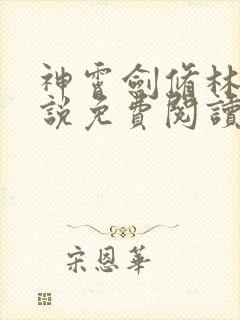 神霄劍脩林
說免費閱讀
宋恩華